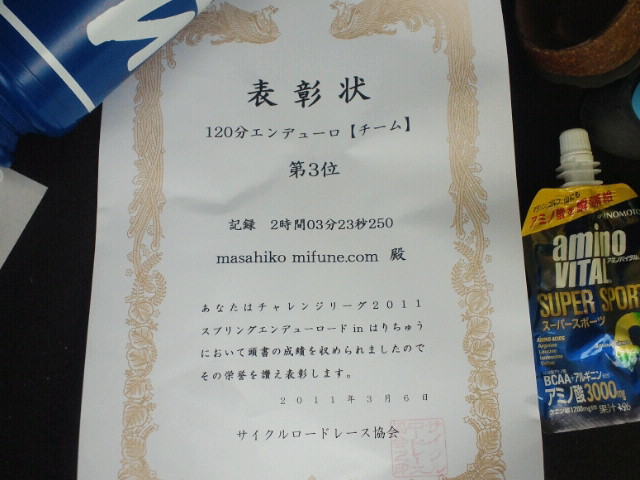 表彰状
120分エンデューロ【チーム】
第3位
記録 2時間03分23秒250
masahiko mifune.com 殿
あなたはチャレンジリーグ2011
スプリングエンデューロード in はりちゅう
において頭書の成績を収められましたので
その栄誉を讃え表彰します。
2011年3月6日
サイクルロードレース協会
アミノ酸を
amino
VITAL
アミノバイタル
SUPER SPORT
スーパースポーツ
AMINO ACIDS
Arginine
BCAA・アルギニン
アミノ酸3000mg